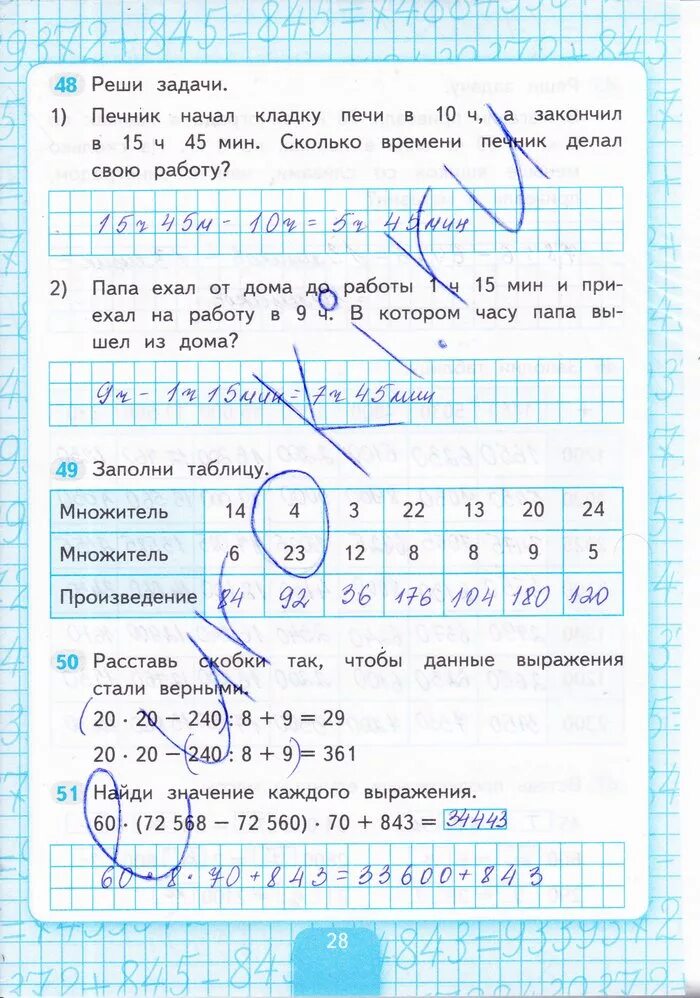 48 Реши задачи.
1) Печник начал кладку печи в 10 ч, а закончил
в 15 ч 45 мин. Сколько времени печник делал
свою работу?
15ч 45м - 10ч = 5ч 45мин
2) Папа ехал от дома до работы 1 ч 15 мин и при-
ехал на работу в 9 ч. В котором часу папа вы-
шел из дома?
9ч - 1ч 15мин = 7ч 45мин
49 Заполни таблицу.
Множитель 14 4 3 22 13 20 24
Множитель 6 23 12 8 8 9 5
Произведение 84 92 36 176 104 180 120
50 Расставь скобки так, чтобы данные выражения
стали верными.
(20 · 20 − 240) : 8 + 9 = 29
20 · 20 − (240 : 8 + 9) = 361
51 Найди значение каждого выражения.
60 · (72 568 − 72 560) · 70 + 843 = 34443
60 · 8 · 70 + 843 = 33600 + 843
28